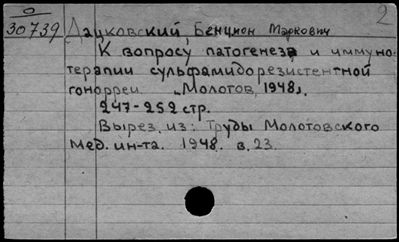 О 2
30739 Дайховский, Бенцион Маркович
К вопросу патогенеза и иммуно-
терапии сульфамидорезистентной
гонорреи. „Молотов, 1948".
247-252 стр.
Вырез. из: Труды Молотовского
Мед. ин-та. 1948. в. 23.